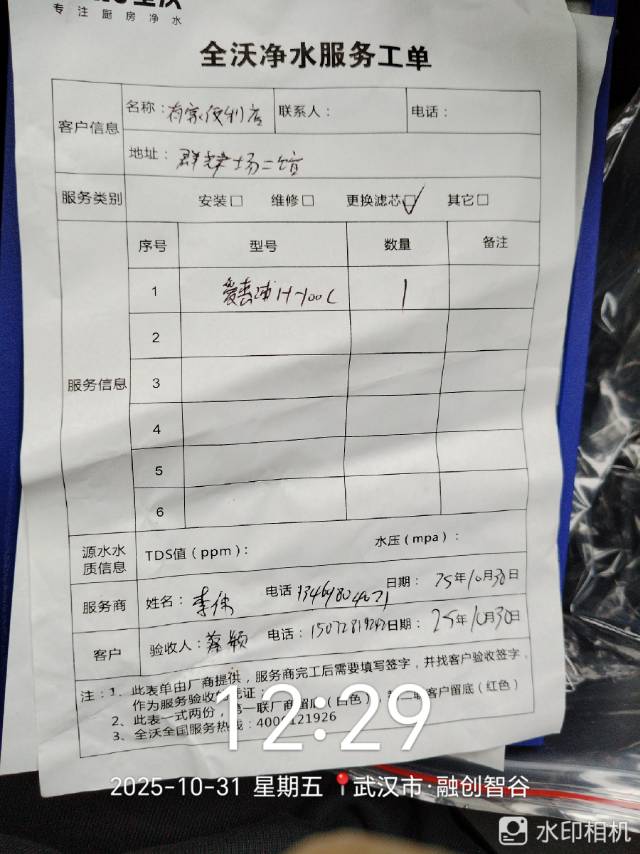 专注厨房净水
全沃净水服务工单
客户信息
名称：有家便利店 联系人： 电话：
地址：群光广场二馆
服务类别 安装□ 维修□ 更换滤芯☑ 其它□
服务信息
序号 型号 数量 备注
1 爱惠浦H-100C 1
2
3
4
5
6
源水水质信息 TDS值（ppm）： 水压（mpa）：
服务商 姓名：李伟 电话 日期：25年10月30日
客户 验收人：蔡颖 电话： 日期：25年10月30日
注：1、此表单由厂商提供，服务商完工后需要填写签字，并找客户验收签字，
作为服务验收 凭证；
2、此表一式两份，第一联厂商留底（白色） 客户留底（红色）
3、全沃全国服务热线：4000121926
12:29
2025-10-31 星期五 武汉市·融创智谷
水印相机